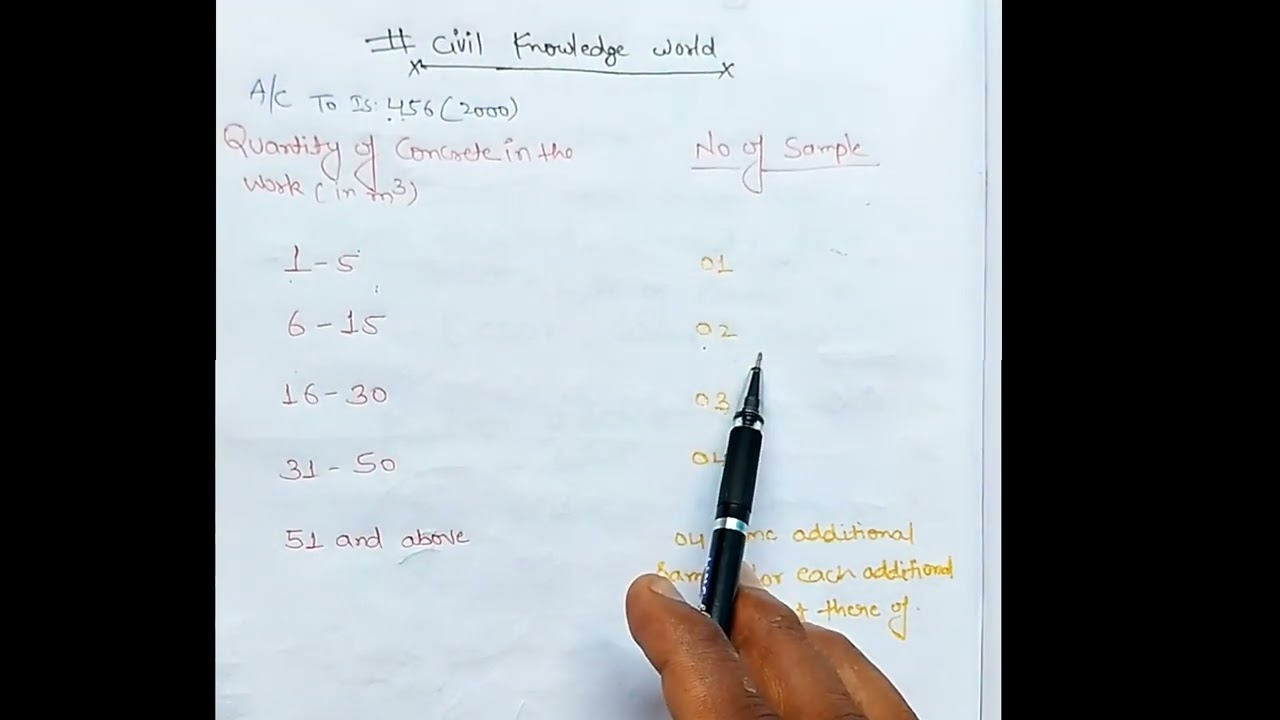 # Civil Knowledge world
A/C To Is: 456 (2000)
Quantity of Concrete in the
work (in m³)
No of Sample
1 - 5
01
6 - 15
02
16 - 30
03
31 - 50
04
51 and above
04 additional
for each additional
there of.